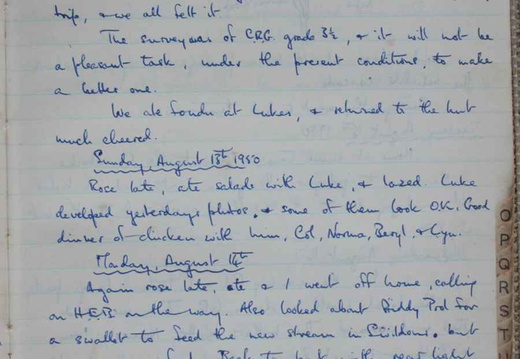 trip, & we all felt it.
The survey was of C.R.G. grade 3½, & it will not be
a pleasant task, under the present conditions, to make
a better one.
We ate fondu at Lukes, & returned to the hut
much cheered.
Sunday, August 13th 1950
Rose late, ate salads with Luke, & lazed. Luke
developed yesterdays photos, & some of them look O.K. Good
dinner of chicken with him, Col, Norma, Beryl, & Gyn.
Monday, August 14th
Again rose late, ate & I went off home, calling
on H.E.B. on the way. Also looked about Priddy Pool for
a swallet to feed the new stream in Swildons, but
Back to hut with
O
P
Q
R
S
T